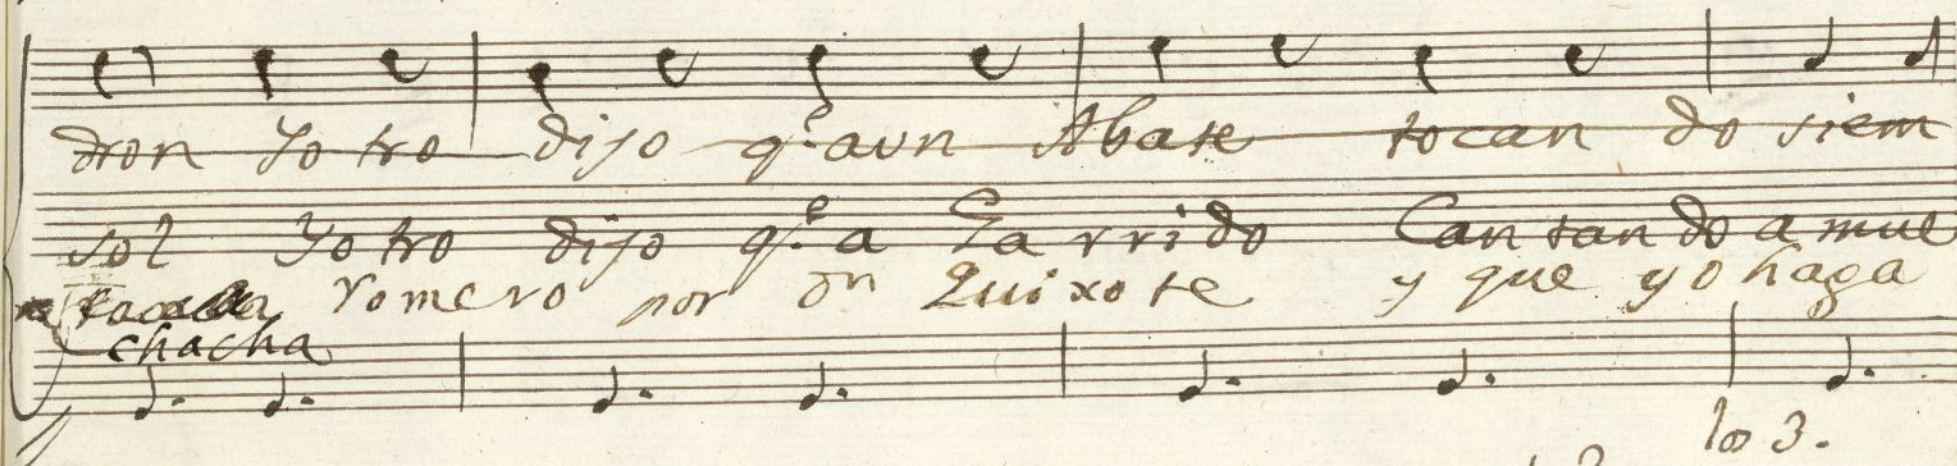 dron Yo tro dijo q.e aun Abate tocan do siem
sol Yo tro dijo q.e a Garrido Can tan do a mue
Romero por dn Quixote y que yo haga
chacha
los 3.